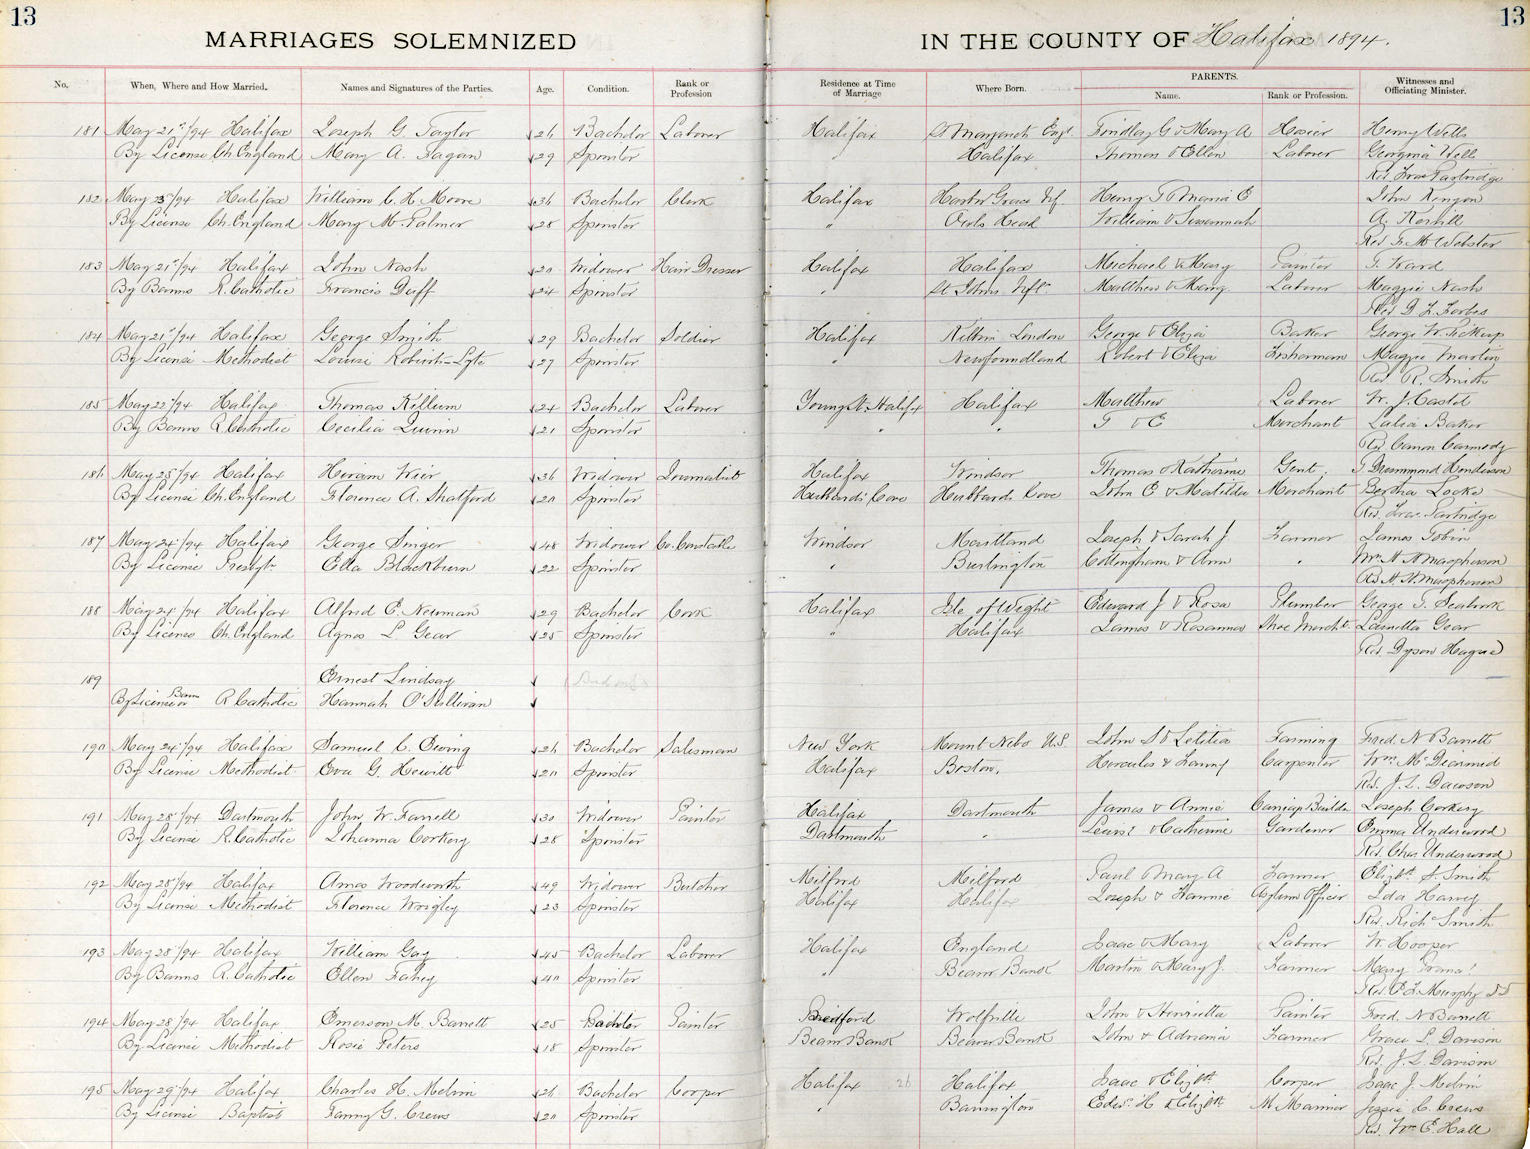 13
13
MARRIAGES SOLEMNIZED IN THE COUNTY OF Halifax 1894.
No. When, Where and How Married. Names and Signatures of the Parties. Age. Condition. Rank or Profession Residence at Time of Marriage Where Born. PARENTS. Name. Rank or Profession. Witnesses and Officiating Minister.
181 May 21st/94 Halifax Joseph G. Taylor 26 Bachelor Laborer Halifax St Margarets Engl. Findlay G & Mary A Hosier Henry Wells
By License Ch. England Mary A. Fagan 29 Spinster " Halifax Thomas & Ellen Laborer Georgina Wells
Rev Frac Partridge
182 May 23/94 Halifax William C. H. Moore 36 Bachelor Clerk Halifax Harbor Grace Nf. Henry T Maria E John Kenyon
By License Ch. England Mary M. Palmer 28 Spinster " Owls Head William & Susannah A.
Rev F. M Webster
183 May 21st/94 Halifax John Nash 20 Widower Hair Dresser Halifax Halifax Michael & Mary Painter T. Ward
By Banns R. Catholic Francis Duff 24 Spinster St Johns Nfld Matthew & Mary Laborer Maggie Nash
Rev D L. Forbes
184 May 21st/94 Halifax George Smith 29 Bachelor Soldier Halifax London George & Eliza Baker George W. Pickup
By License Methodist Louise Roberts-Lyte 27 Spinster " Newfoundland Robert & Eliza Fisherman Maggie Martin
Rev. R. Smith
185 May 22/94 Halifax Thomas Killum 24 Bachelor Laborer Young St. Halifax Halifax Matthew Laborer W. J.
By Banns R. Catholic Cecilia Quinn 21 Spinster " " T & E Merchant Baker
Rev. Canon Carmody
186 May 25/94 Halifax Hiram Weir 36 Widower Journalist Halifax Windsor Thomas & Katherine Gent. J Drummond Henderson
By License Ch. England Florence A. Shatford 20 Spinster Hubbards Cove Hubbards Cove John E & Matilda Merchant Bertha Locke
Rev. Frac. Partridge
187 May 24/94 Halifax George Singer 48 Widower Co. Constable Windsor Maitland Joseph & Sarah J. Farmer James Tobin
By License Presbyt. Ella Blackburn 22 Spinster " Burlington Cottingham & Ann " Wm A H Macpherson
Rev H. H. Macpherson
188 May 24/94 Halifax Alfred E. Newman 29 Bachelor Cook Halifax Isle of Wight Edward J & Rosa Plumber George T.
By License Ch. England Agnes L Gear 25 Spinster " Halifax James & Rosanna Shoe Mercht. Gear
Rev. Dyson Hague
189 Ernest Lindsay
By License or Banns R Catholic Hannah O'Sullivan
190 May 24/94 Halifax Samuel C. Ewing 26 Bachelor Salesman New York Mount Nebo U.S. John S & Letitia Farming Fred. N Barrett
By License Methodist Eva G. Hewitt 20 Spinster Halifax Boston. Hercules & Fanny Carpenter Wm. McDiarmid
Rev. J. L. Dawson
191 May 28/94 Dartmouth John W. Farrell 30 Widower Painter Halifax Dartmouth James & Annie Carriage Builder Joseph Corkery
By License R. Catholic Johanna Corkery 28 Spinster Dartmouth " Lewis & Catherine Gardener Emma Underwood
Rev. Chas Underwood
192 May 28/94 Halifax Amos Woodworth 49 Widower Butcher Milford Milford Paul Mary A Farmer Elizbt. S. Smith
By License Methodist Florence Wrigley 23 Spinster Halifax Halifax Joseph & Fannie Asylum Officer Ida Harvey
Rev. Richd Smith
193 May 28/94 Halifax William Gay 45 Bachelor Laborer Halifax England Isaac & Mary Laborer W. Hooper
By Banns R. Catholic Ellen Fahey 40 Spinster " Beaver Bank Martin & Mary J. Farmer Mary
Rev. E. F. Murphy
194 May 28/94 Halifax Emerson M. Barrett 25 Bachelor Painter Bedford Wolfville John & Henrietta Painter Fred. N Barrett
By License Methodist Rosie Peters 18 Spinster Beaver Bank Beaver Bank John & Adriania Farmer Grace L. Davison
Rev. J. L. Davison
195 May 29/94 Halifax Charles H. Melvin 26 Bachelor Cooper Halifax 26 Halifax Isaac & Elizbth Cooper Isaac J. Melvin
By License Baptist Fanny G. Crews 20 Spinster " Barrington Edw. H & Elizbth M Mariner Jessie C. Crews
Rev. Wm E. Hall